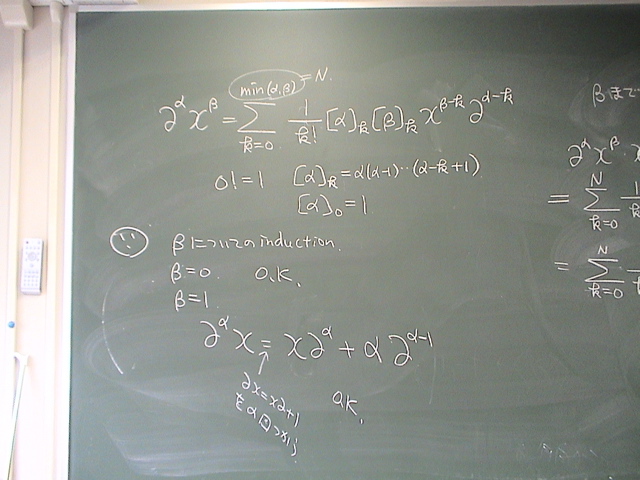 min(α,β) = N.
∂^α x^β = Σ_{k=0} 1/k! [α]_k [β]_k x^{β-k} ∂^{α-k}
0! = 1 [α]_k = α(α-1)⋯(α-k+1)
[α]_0 = 1
β についての induction.
β=0. O.K.
β=1.
∂^α x = x∂^α + α∂^{α-1}
∂x = x∂+1
を α 回
O.K.
β まで
∂^α x^β · x
= Σ_{k=0}^{N} 1
= Σ_{k=0}^{N}